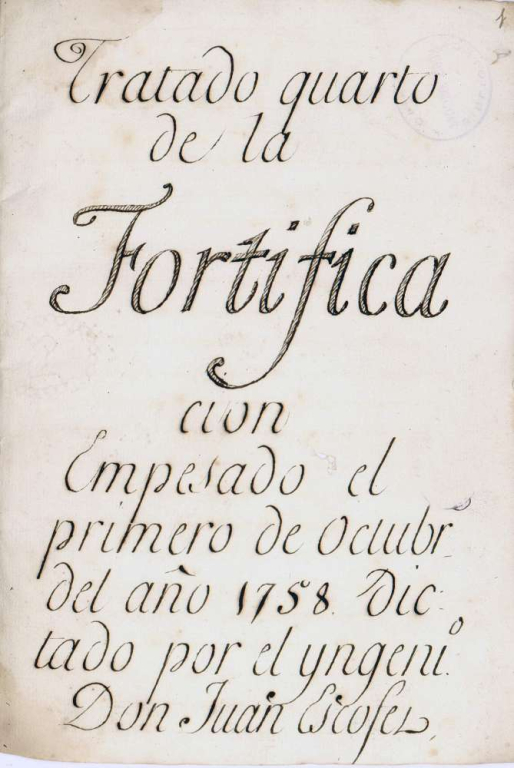 Tratado quarto
de la
Fortifica
cion
Empesado el
primero de Octubrͤ
del año 1758. Dic-
tado por el yngeniº.
Don Juan Escofet,